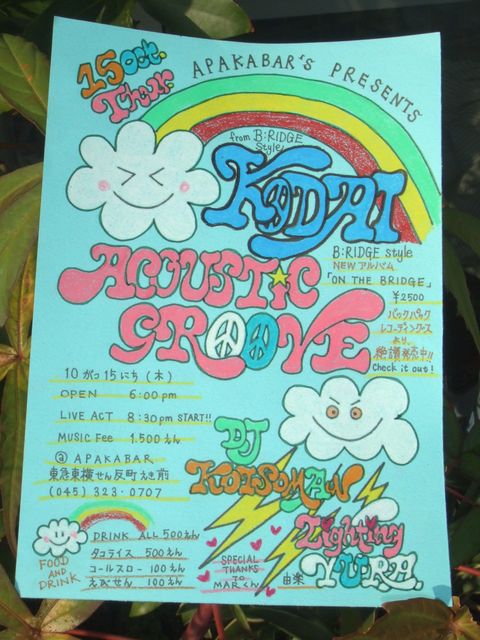 15 Oct.
Thur
APAKABAR'S PRESENTS
from B:RIDGE
Style
KODAI
ACOUSTIC
GROOVE
B:RIDGE style
NEW アルバム
「ON THE BRIDGE」
¥2500
バックパック
レコーディングース
より、
絶讃発売中!!
Check it out!
10がつ15にち(木)
OPEN 6:00 pm
LIVE ACT 8:30 pm START!!
MUSIC Fee 1.500 えん
@ APAKABAR
東急東横せん反町えき前
(045) 323・0707
DJ
KOTSOMAN
Lighting
YURA
由楽
FOOD
AND
DRINK
DRINK ALL 500えん
タコライス 500えん
コールスロー 100えん
えびせん 100えん
SPECIAL
THANKS
TO
MARくん